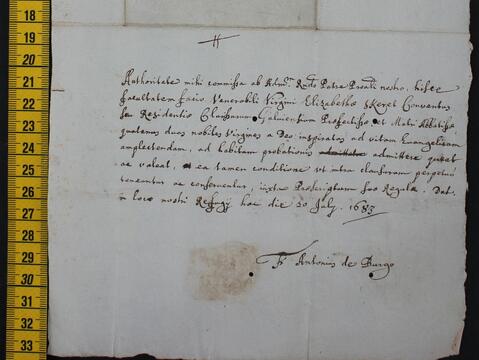 18
19
20
21
22
23
24
25
26
27
28
29
30
31
32
33
Authoritate mihi commissa ab Adm. Rndo Patre Provli nostro, hisce
facultatem facio Venerabili Virgini Elizabethæ Skeret Conventus
seu Residentiæ Clarissarum Galviensium Præfectissæ et Matri Abbatissæ
quatenus duas nobiles Virgines a Deo inspiratas ad vitam Evangelicam
amplectendam, ad habitum probationis admittere queat
ac valeat, ea tamen conditione ut intra clausuram perpetuo
teneantur ac conserventur, iuxta Præscriptum suæ Regulæ. Dat.
in loco nostri Refugij hac die 20 July. 1683
Fr Antonius de Burgo